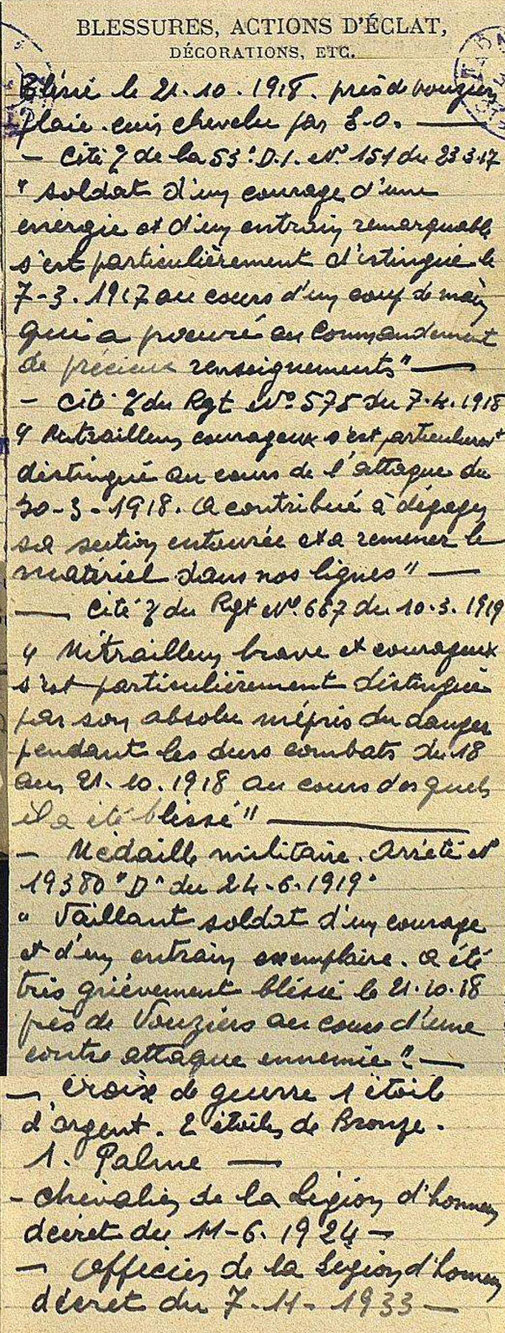 BLESSURES, ACTIONS D'ÉCLAT,
DÉCORATIONS, ETC.
Bléssé le 21.10.1918. près de vouziers
plaie. cuir chevelu par E.O. —
— Cité % de la 53e D.I. No 151 du 23.3.17
" Soldat d'un courage d'une
energie et d'un entrain remarquable
s'est particulièrement distingué le
7-3.1917 au cours d'un coup de main
qui a procuré au Commandement
de précieux renseignements" —
— Cité % du Rgt No 575 du 7.4.1918
" Mitrailleur courageux s'est particulièremt
distingué au cours de l'attaque du
30-3-1918. a contribué à dégager
sa section entourée et a ramener le
matériel dans nos lignes" —
— Cité % du Rgt No 667 du 10.3.1919
" Mitrailleur brave et courageux
s'est particulièrement distingué
par son absolu mépris du danger
pendant les durs combats du 18
au 21.10.1918 au cours desquels
il a été blessé" —
— Médaille militaire. Arrêté No
19380 "D" du 24-6-1919.
" Vaillant soldat d'un courage
et d'un entrain exemplaire. a été
très grièvement bléssé le 21.10.18
près de Vouziers au cours d'une
contre attaque ennemie". —
— Croix de guerre 1 étoile
d'argent. 2 étoiles de Bronze.
1. Palme —
- Chevalier de la Légion d'honneur
décret du 11-6.1924 —
— Officier de la Légion d'honneur
décret du 7-11-1933 —